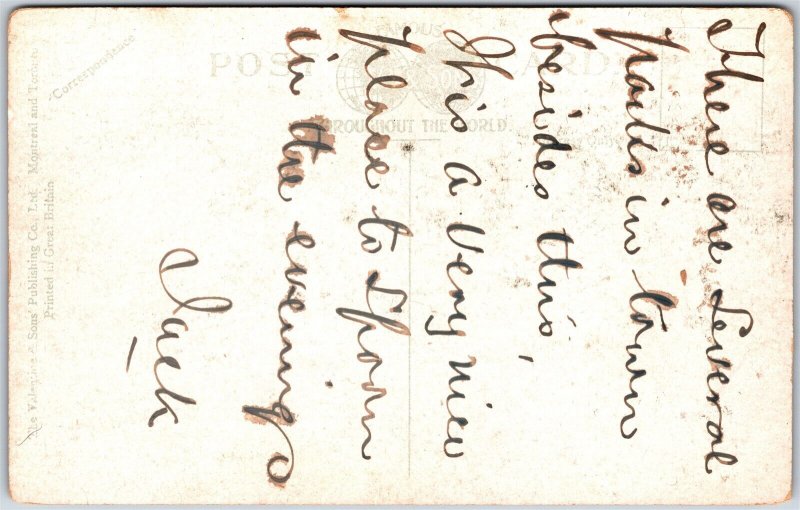 There are Several
parks in town
besides this,
It is a Very nice
place to Spoon
in the evenings
Jack
POST CARD
FAMOUS
THROUGHOUT THE WORLD.
Correspondence
The Valentine & Sons' Publishing Co., Ltd. Montreal and Toronto
Printed in Great Britain